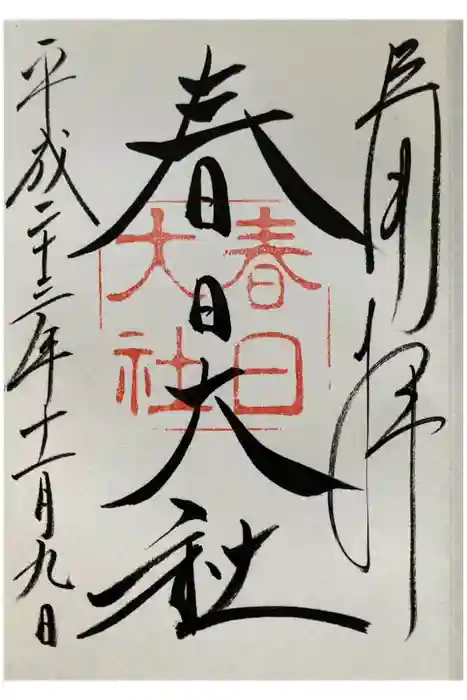 春日大社
春日
大社
平成二十三年十一月九日